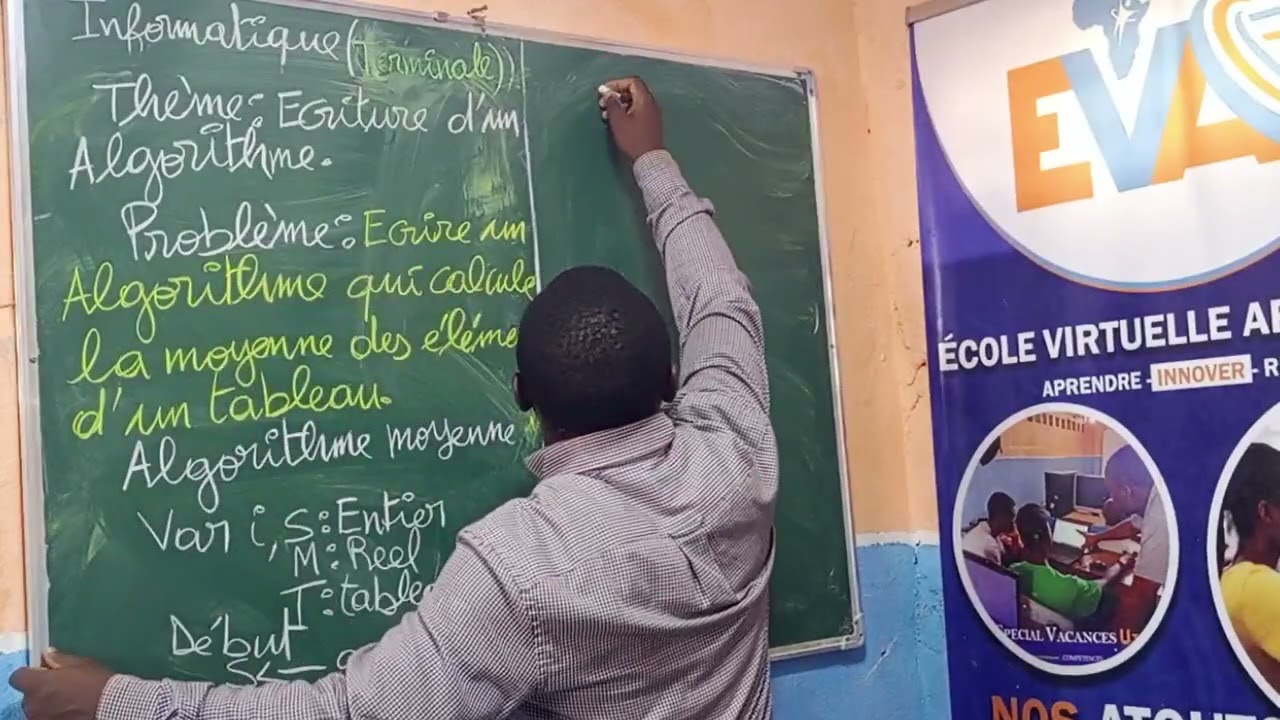 Informatique (Terminale)
Thème: Ecriture d'un
Algorithme.
Problème: Ecrire un
Algorithme qui calcule
la moyenne des éléme
d'un tableau.
Algorithme moyenne
Var i, S: Entier
M: Reel
T: table
Début
S ←
EVA
ÉCOLE VIRTUELLE A
APRENDRE - INNOVER - R
SPECIAL VACANCES U
COMPETENCES
NOS ATOUT